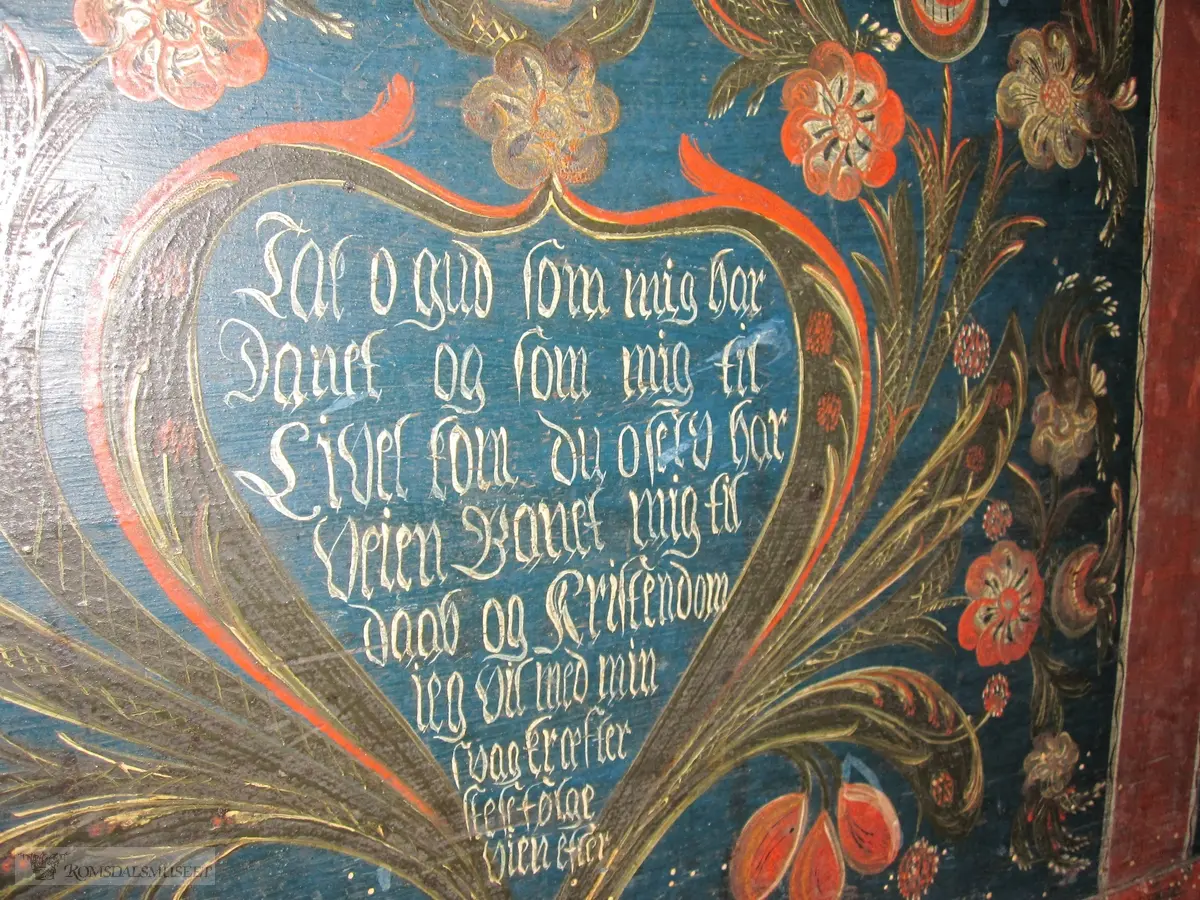 Tak o gud som mig har
Danet og som mig til
Livet kom du osetv har
Veien Banet mig til
daab og Kristendom
ieg vil med min
svag kræfter
stese følge
vien efter
ROMSDALSMUSEET